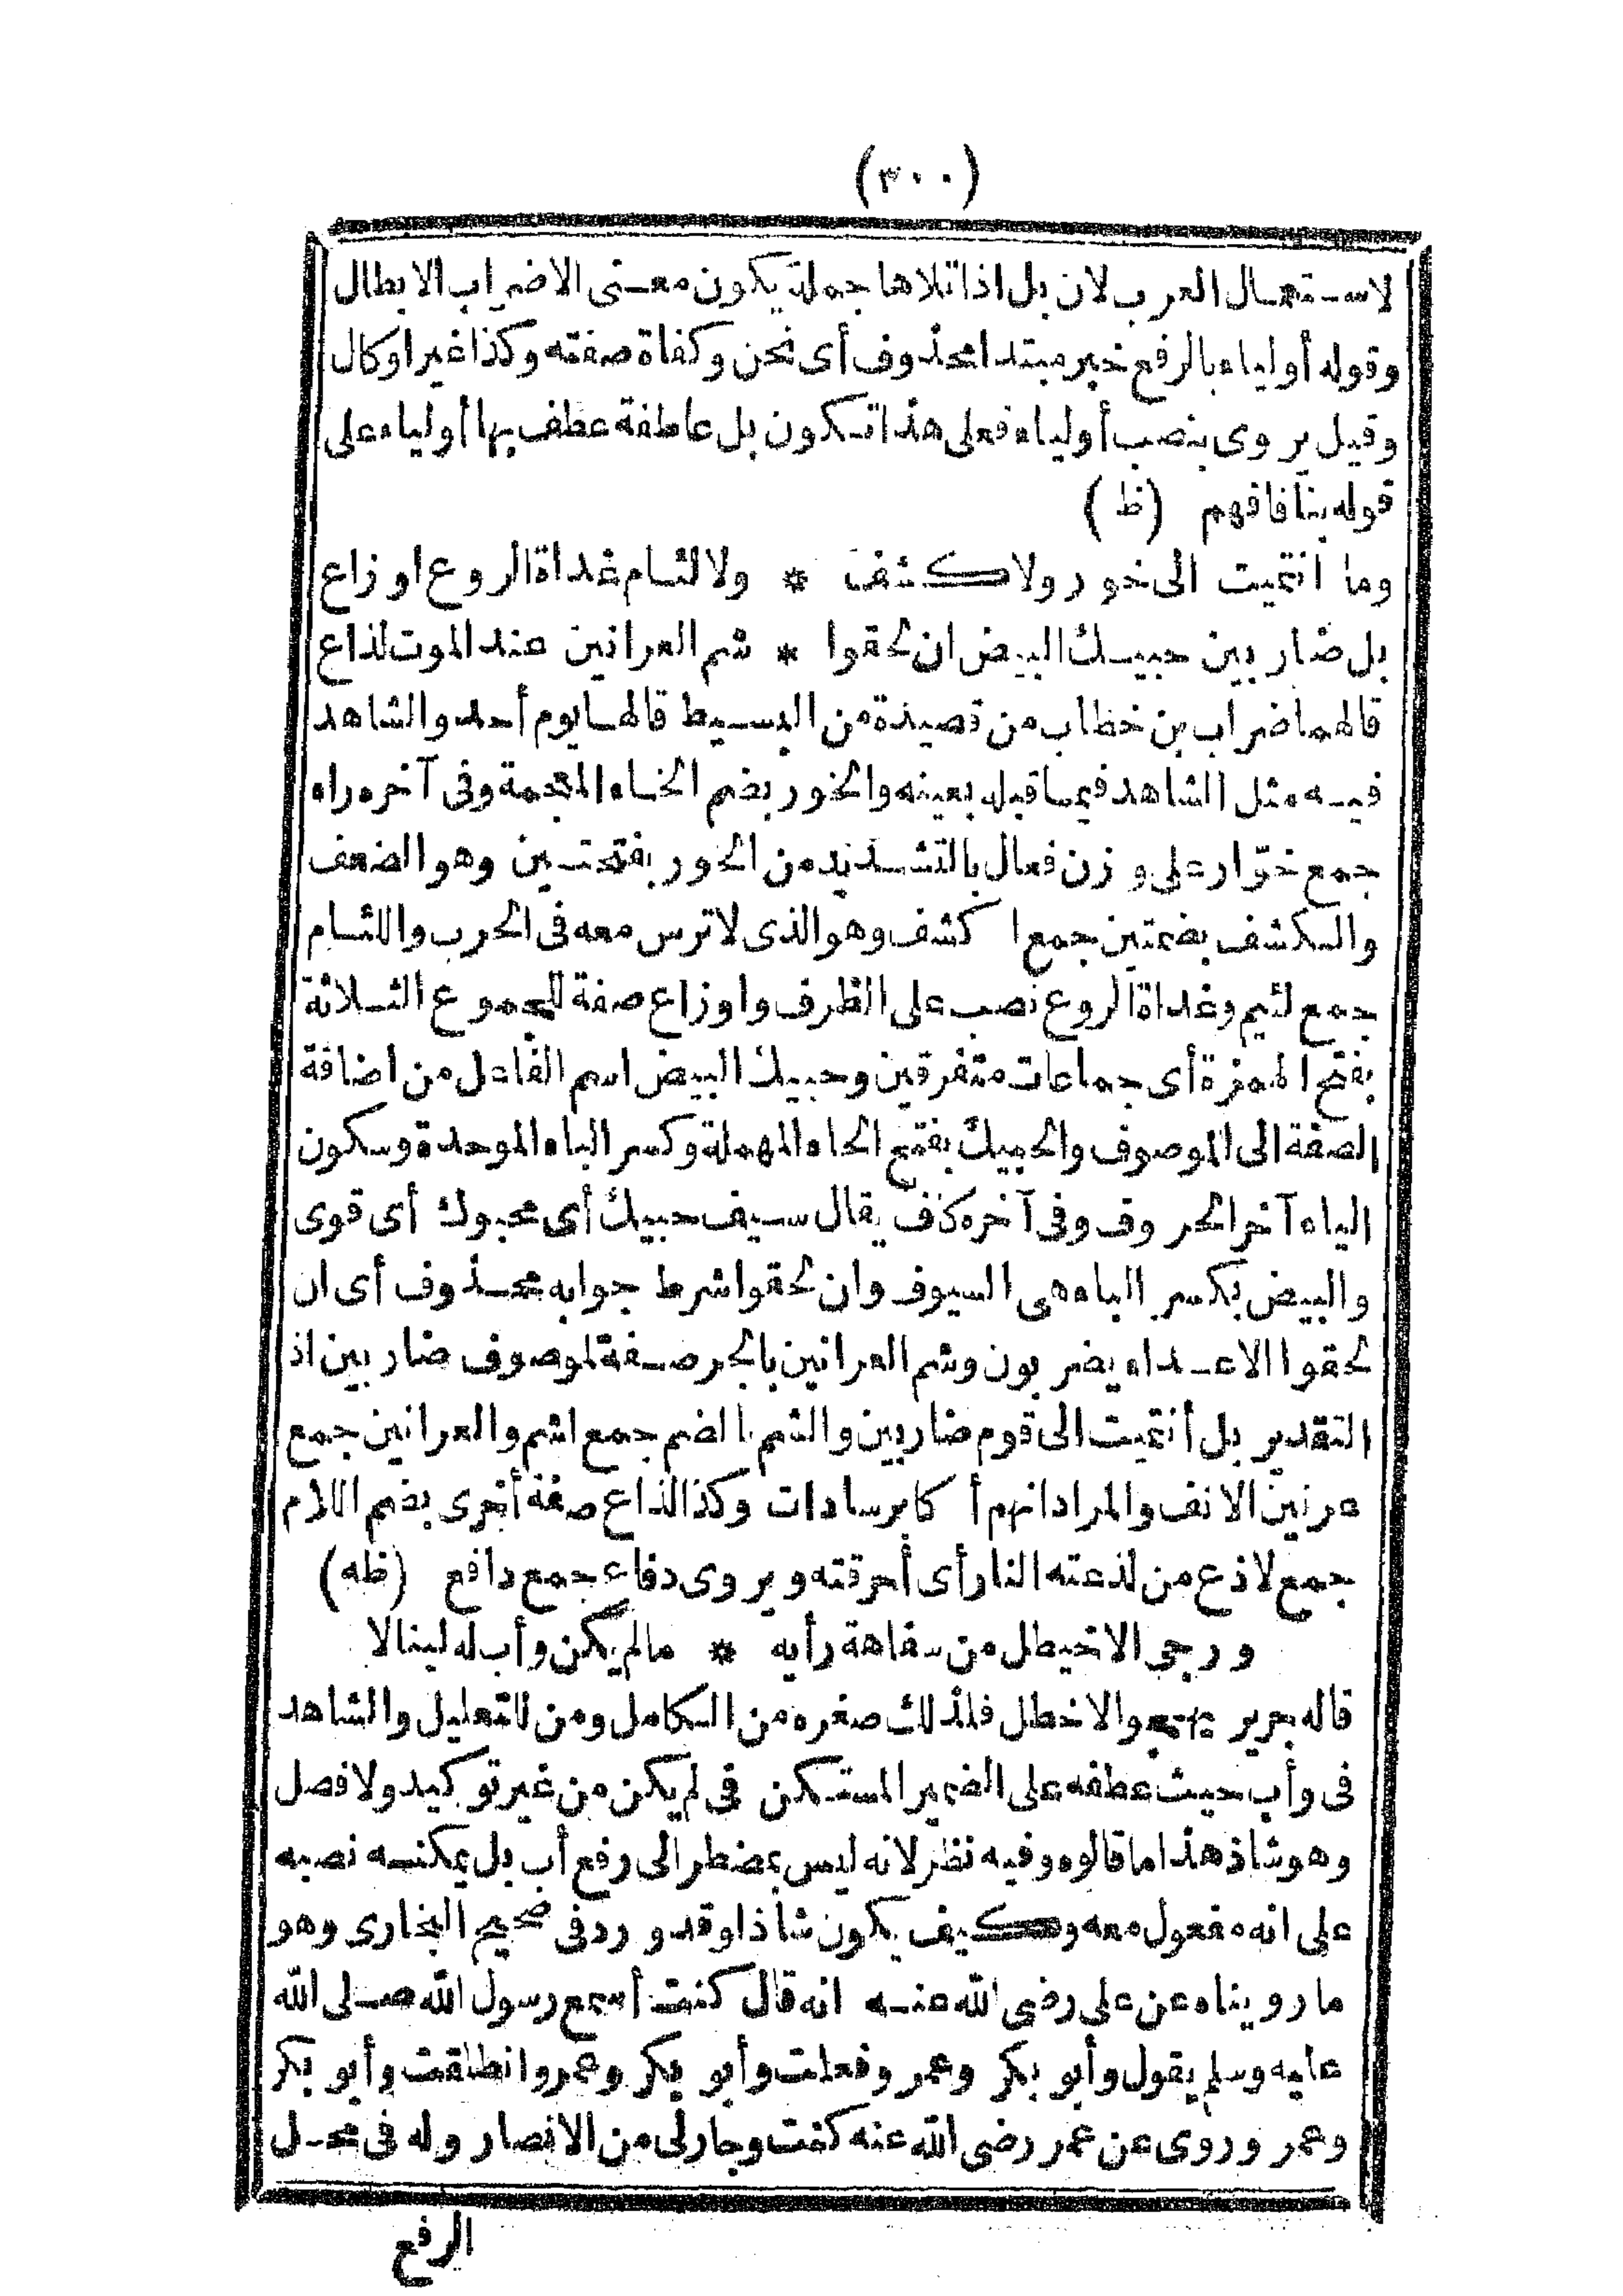 (٣٠٠)
لاستعمال العرب لان بل اذا تلاها جملة يكون معنى الاضراب الابطال
وقوله أولياء بالرفع خبر مبتدا محذوف أى نحن وكفاة صفته وكذا غير اوكال
وقيل يروى بنصب أولياء فعلى هذا تكون بل عاطفة عطف بها أولياء على
قوله بنا فافهم (ظ)
وما انتميت الى خور ولا كشف * ولا لئام غداة الروع اوزاع
بل ضاربين حبيك البيض ان لحقوا * شم العرانين عند الموت لذاع
قالهما ضراب بن خطاب من قصيدة من البسيط قالها يوم أحد والشاهد
فيه مثل الشاهد فيما قبله بعينه والخور بضم الخاء المعجمة وفى آخره راء
جمع خوّار على وزن فعال بالتشديد من الخور بفتحتين وهو الضعف
والكشف بضمتين جمع اكشف وهو الذى لا ترس معه فى الحرب واللئام
جمع لئيم وغداة الروع نصب على الظرف واوزاع صفة للمجموع الثلاثة
بفتح الهمزة أى جماعات متفرقين وحبيك البيض اسم الفاعل من اضافة
الصفة الى الموصوف والحبيك بفتح الحاء المهملة وكسر الباء الموحدة وسكون
الياء آخر الحروف وفى آخره كاف يقال سيف حبيك أى محبوك أى قوى
والبيض بكسر الباء هى السيوف وان لحقوا شرط جوابه محذوف أى ان
لحقوا الاعداء يضربون وشم العرانين بالجر صفة لموصوف ضاربين اذ
التقدير بل أنتميت الى قوم ضاربين والشم بالضم جمع اشم والعرانين جمع
عرنين الانف والمراد انهم أكابر سادات وكذا لذاع صفة أخرى بضم اللام
جمع لاذع من لذعته النار أى أحرقته ويروى دفاع جمع دافع (ظه)
ورجى الاخيطل من سفاهة رأيه * مالم يكن وأب له لينالا
قاله جرير يهجو الاخطل فلذلك صغره من الكامل ومن للتعليل والشاهد
فى وأب حيث عطفه على الضمير المستكن فى لم يكن من غير توكيد ولا فصل
وهو شاذ هذا ما قالوه وفيه نظر لانه ليس بمضطر الى رفع أب بل يمكنه نصبه
على انه مفعول معه وكيف يكون شاذا وقد ورد فى صحيح البخارى وهو
ما رويناه عن على رضى الله عنه انه قال كنت أسمع رسول الله صلى الله
عليه وسلم يقول وأبو بكر وعمر وفعلت وأبو بكر وعمر وانطلقت وأبو بكر
وعمر وروى عن عمر رضى الله عنه كنت وجار لى من الانصار وله فى محل
الرفع